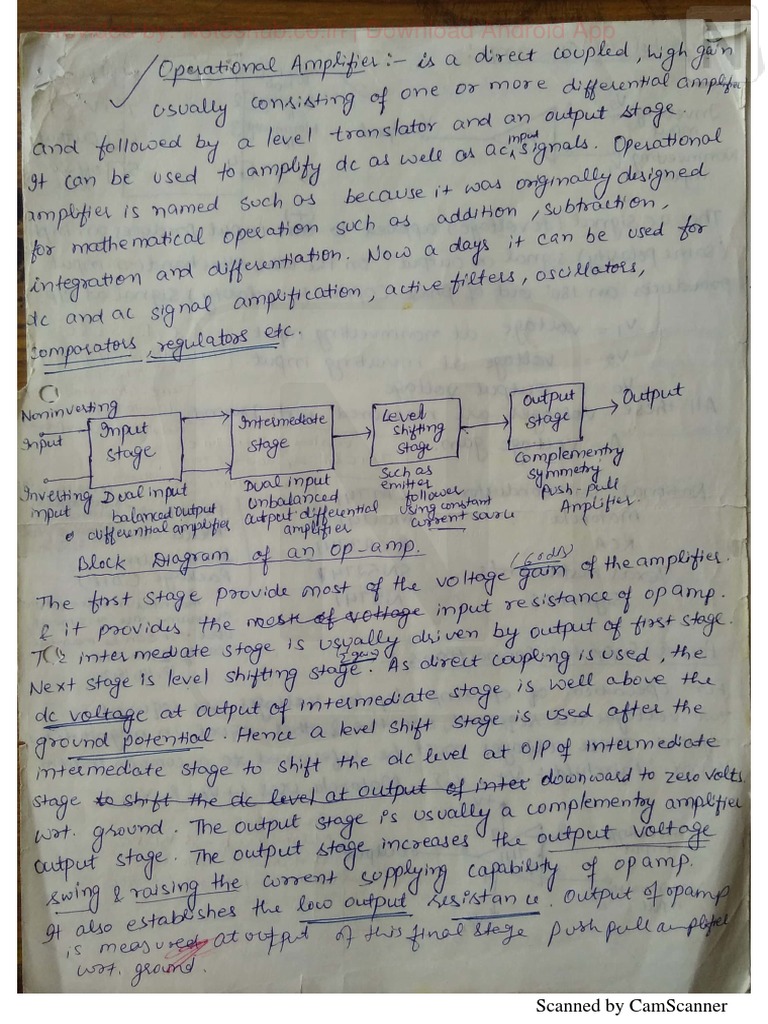 Download Android App
Operational Amplifier :- is a direct coupled, high gain
usually consisting of one or more differential amplifier
and followed by a level translator and an output stage.
It can be used to amplify dc as well as ac input signals. Operational
amplifier is named such as because it was originally designed
for mathematical operation such as addition, subtraction,
integration and differentiation. Now a days it can be used for
dc and ac signal amplification, active filters, oscillators,
comparators, regulators etc.
Noninverting
Input
Inverting
input
Input
stage
Dual input
balanced output
differential amplifier
Intermediate
stage
Dual input
unbalanced
output differential
amplifier
Level
shifting
stage
Such as
emitter
follower
using constant
current source
Output
stage
Complementry
symmetry
Push-pull
Amplifier.
Output
Block Diagram of an op-amp.
The first stage provide most of the voltage gain (60dB) of the amplifier.
& it provides the most of voltage input resistance of op amp.
The intermediate stage is usually driven by output of first stage.
Next stage is level shifting stage. As direct coupling is used, the
dc voltage at output of intermediate stage is well above the
ground potential. Hence a level shift stage is used after the
intermediate stage to shift the dc level at O/P of intermediate
stage to shift the dc level at output of inter downward to zero volts
wrt. ground. The output stage is usually a complementry amplifier
output stage. The output stage increases the output voltage
swing & raising the current supplying capability of op amp.
It also establishes the low output resistance. Output of opamp
is measured at output of this final stage push pull amplifier
wrt. ground.
Scanned by CamScanner